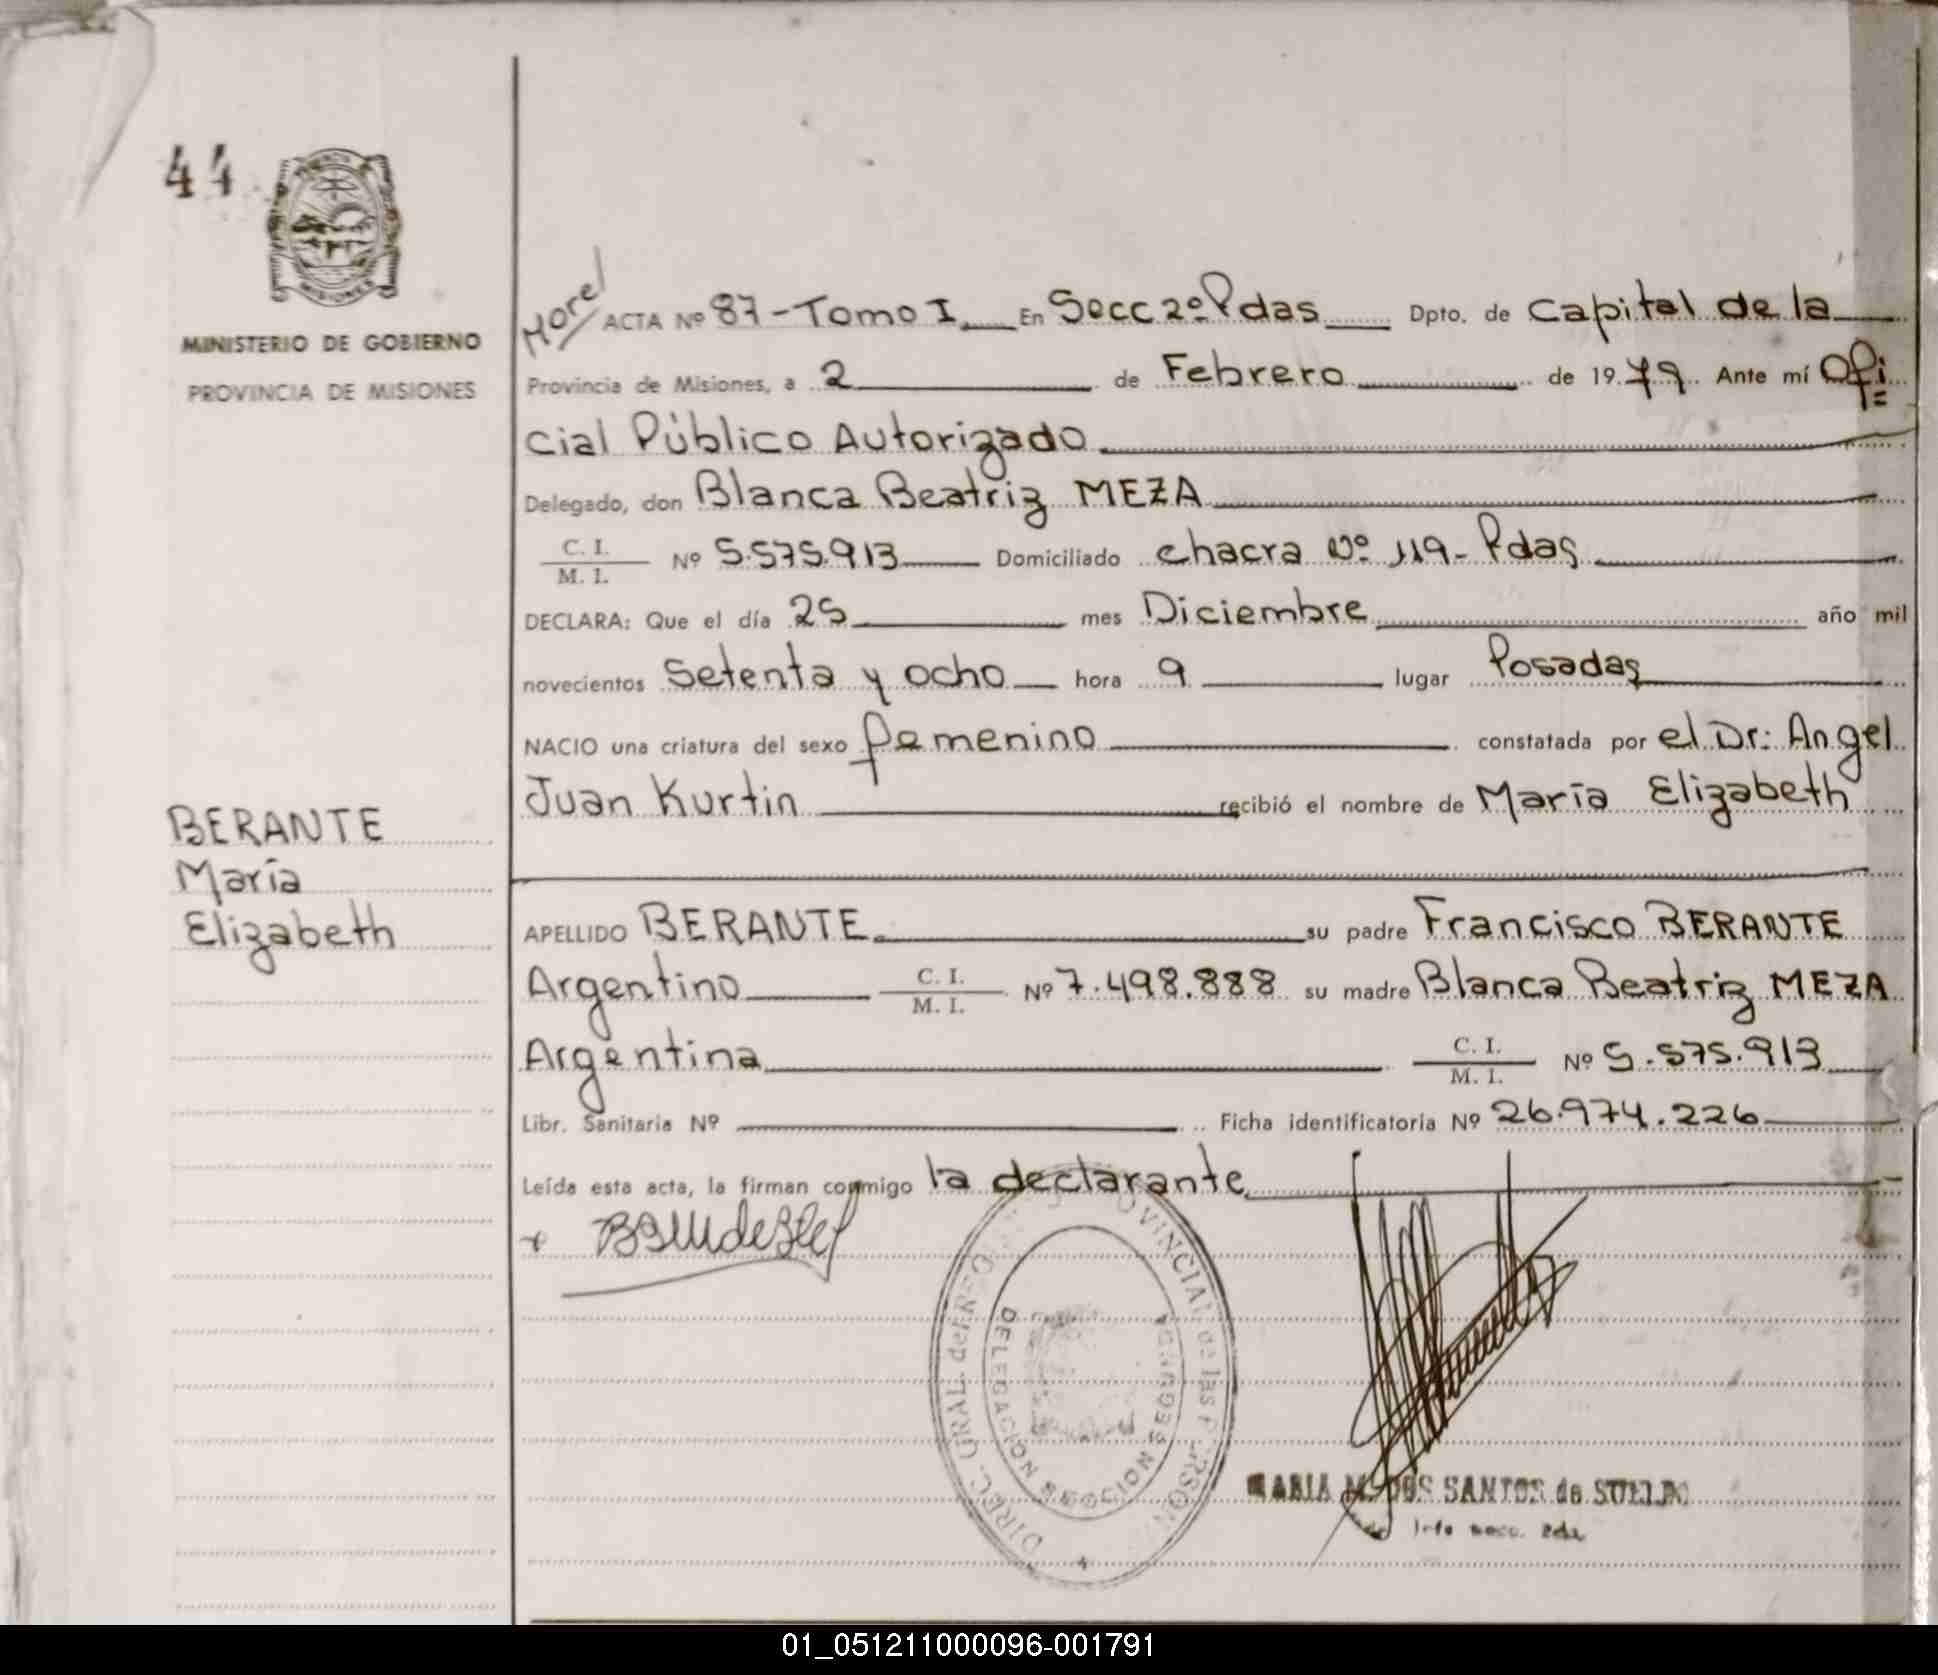 44
MINISTERIO DE GOBIERNO
PROVINCIA DE MISIONES
BERANTE
María
Elizabeth
Morel
ACTA Nº 87-Tomo I. En Secc 2º Pdas Dpto. de Capital de la
Provincia de Misiones, a 2 de Febrero de 1979. Ante mí Ofi=
cial Público Autorizado
Delegado, don Blanca Beatriz MEZA
C. I. / M. I. Nº 5.575.913 Domiciliado chacra Nº 119- Pdas
DECLARA: Que el día 25 mes Diciembre año mil
novecientos Setenta y ocho hora 9 lugar Posadas
NACIO una criatura del sexo femenino constatada por el Dr: Angel
Juan Kurtin recibió el nombre de María Elizabeth
APELLIDO BERANTE. su padre Francisco BERANTE
Argentino C. I. / M. I. Nº 7.498.888 su madre Blanca Beatriz MEZA
Argentina C. I. / M. I. Nº 5.575.913
Libr. Sanitaria Nº Ficha identificatoria Nº 26.974.226
Leída esta acta, la firman conmigo la declarante
DIREC. GRAL. del REG PROVINCIAL de las PERSON
DELEGACION SECCION
MARIA M. DOS SANTOS de SUELDO
Jefe secc. 2da
01_051211000096-001791